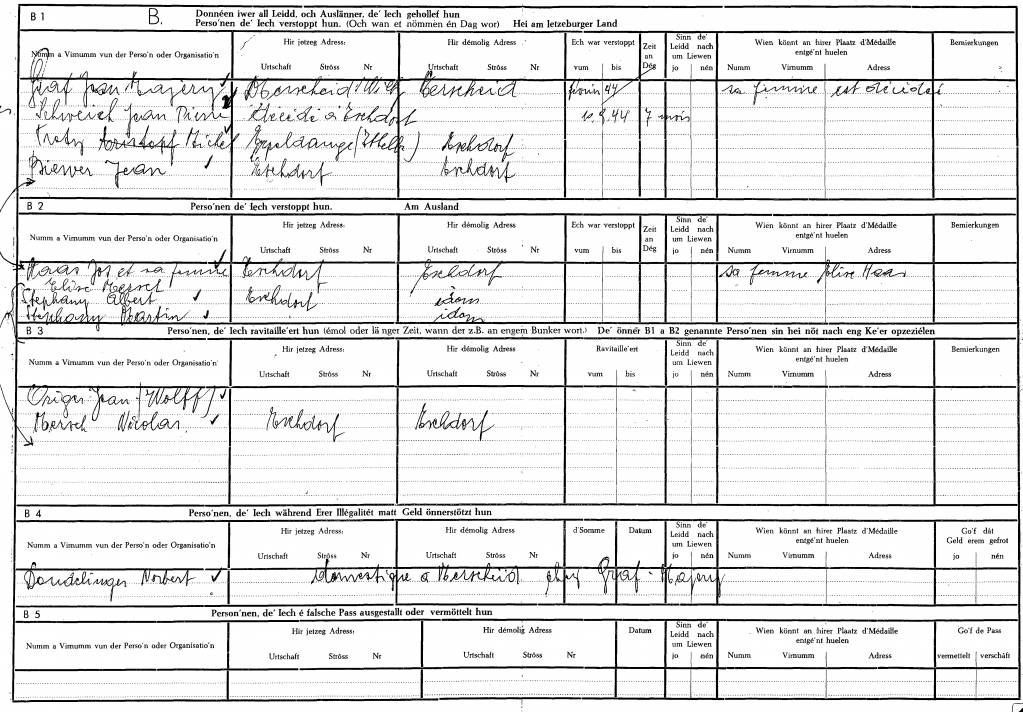 B 1 B. Donnéen iwer all Leidd, och Auslänner, de' Iech gehollef hun
Perso'nen de' Iech verstoppt hun. (Och wan et nömmen én Dag wor) Hei am letzeburger Land
Numm a Virnumm vun der Perso'n oder Organisatio'n Hir jetzeg Adress: Hir démolig Adress Ech war verstoppt Zeit an Dég Sinn de' Leidd nach um Liewen Wien könnt an hirer Plaatz d'Médaille entgé'nt huelen Bemierkungen
Urtschaft Ströss Nr Urtschaft Ströss Nr vum bis jo nén Numm Virnumm Adress
Graf Jean Majery ✓ Merscheid Merscheid 44 sa femme est décidée
Schweich Jean Pierre décidé à Eschdorf 10.9.44 7 mois
Michel ✓ Eschdorf
Biewer Jean ✓ Eschdorf Eschdorf
B 2 Perso'nen de' Iech verstoppt hun. Am Ausland
Numm a Virnumm vun der Perso'n oder Organisatio'n Hir jetzeg Adress: Hir démolig Adress Ech war verstoppt Zeit an Dég Sinn de' Leidd nach um Liewen Wien könnt an hirer Plaatz d'Médaille entgé'nt huelen Bemierkungen
Urtschaft Ströss Nr Urtschaft Ströss Nr vum bis jo nén Numm Virnumm Adress
Haas Jos et sa femme ✓ Eschdorf Eschdorf sa femme Elise Haas
Elise Mersch
Stephany Albert ✓ Eschdorf idem
Stephany Martin ✓ idem
B 3 Perso'nen, de' Iech ravitaille'ert hun (émol oder lä nger Zeit, wann der z.B. an engem Bunker wort.) De' önnér B1 a B2 genannte Perso'nen sin hei nöt nach eng Ke'er opzeziélen
Numm a Virnumm vun der Perso'n oder Organisatio'n Hir jetzeg Adress: Hir démolig Adress Ravitaille'ert Sinn de' Leidd nach um Liewen Wien könnt an hirer Plaatz d'Médaille entgé'nt huelen Bemierkungen
Urtschaft Ströss Nr Urtschaft Ströss Nr vum bis jo nén Numm Virnumm Adress
Origer Jean (Wolff) ✓
Mersch Nicolas ✓ Eschdorf Eschdorf
B 4 Perso'nen, de' Iech während Erer Illégalitét matt Geld önnerstötzt hun
Numm a Virnumm vun der Perso'n oder Organisatio'n Hir jetzeg Adress: Hir démolig Adress d'Somme Datum Sinn de' Leidd nach um Liewen Wien könnt an hirer Plaatz d'Médaille entgé'nt huelen Go'f dát Geld erem gefrot
Urtschaft Ströss Nr Urtschaft Ströss Nr jo nén Numm Virnumm Adress jo nén
Dondelinger Norbert ✓ domestique à Merscheid chez Graf-Majery
B 5 Person'nen, de' Iech é falsche Pass ausgestallt oder vermöttelt hun
Numm a Virnumm vun der Perso'n oder Organisatio'n Hir jetzeg Adress: Hir démolig Adress Datum Sinn de' Leidd nach um Liewen Wien könnt an hirer Plaatz d'Médaille entgé'nt huelen Go'f de Pass
Urtschaft Ströss Nr Urtschaft Ströss Nr jo nén Numm Virnumm Adress vermettelt verschäft